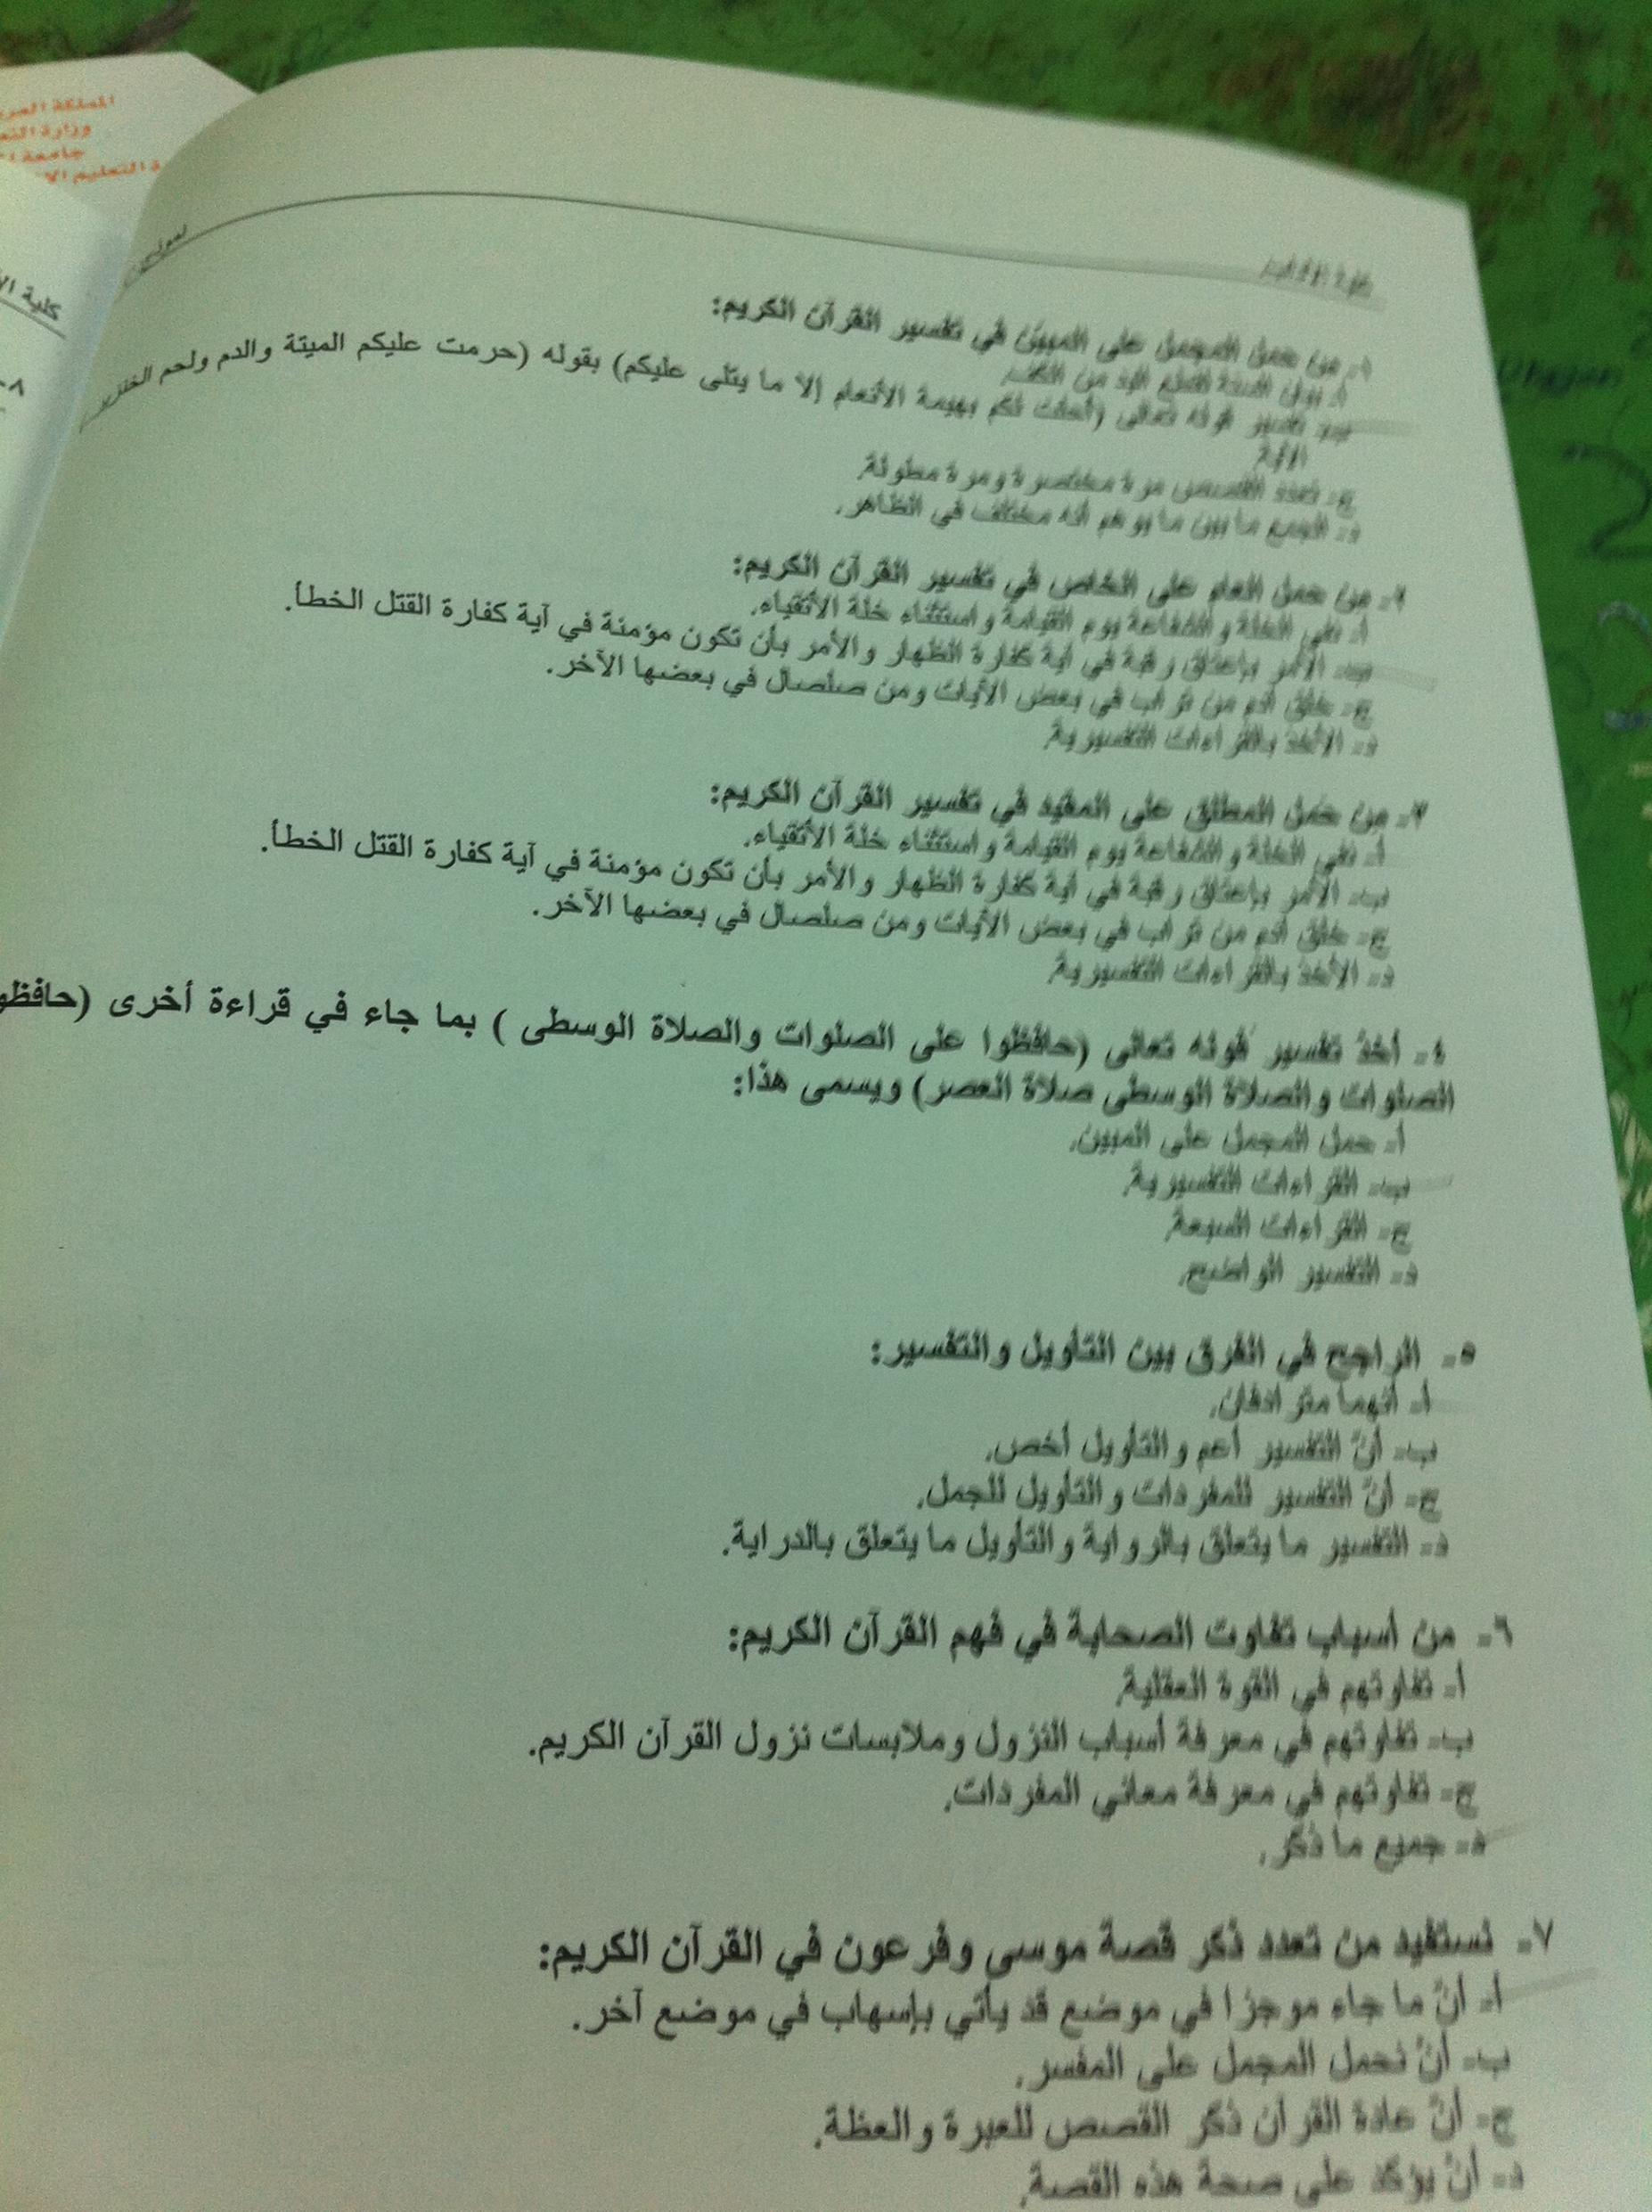 المملكة العر
وزارة التع
جامعة
التعليم الا
كلية ال
٨
١- من حمل المجمل على المبين في تفسير القرآن الكريم:
أ- بيان السنة لقطع اليد من الكف.
ب- تفسير قوله تعالى (أحلت لكم بهيمة الأنعام إلا ما يتلى عليكم) بقوله (حرمت عليكم الميتة والدم ولحم الخنزير)
الآية
ج- تعدد القصص مرة مختصرة ومرة مطولة.
د- الجمع ما بين ما يوهم أنه مختلف في الظاهر.
٢- من حمل العام على الخاص في تفسير القرآن الكريم:
أ- نفي الخلة والشفاعة يوم القيامة واستثناء خلة الأتقياء.
ب- الأمر بإعتاق رقبة في آية كفارة الظهار والأمر بأن تكون مؤمنة في آية كفارة القتل الخطأ.
ج- خلق آدم من تراب في بعض الآيات ومن صلصال في بعضها الآخر.
د- الأخذ بالقراءات التفسيرية.
٣- من حمل المطلق على المقيد في تفسير القرآن الكريم:
أ- نفي الخلة والشفاعة يوم القيامة واستثناء خلة الأتقياء.
ب- الأمر بإعتاق رقبة في آية كفارة الظهار والأمر بأن تكون مؤمنة في آية كفارة القتل الخطأ.
ج- خلق آدم من تراب في بعض الآيات ومن صلصال في بعضها الآخر.
د- الأخذ بالقراءات التفسيرية.
٤- أخذ تفسير قوله تعالى (حافظوا على الصلوات والصلاة الوسطى ) بما جاء في قراءة أخرى (حافظو
الصلوات والصلاة الوسطى صلاة العصر) ويسمى هذا:
أ- حمل المجمل على المبين.
ب- القراءات التفسيرية.
ج- القراءات السبعة.
د- التفسير الواضح.
٥- الراجح في الفرق بين التأويل والتفسير:
أ- أنهما مترادفان.
ب- أنّ التفسير أعم والتأويل أخص.
ج- أنّ التفسير للمفردات والتأويل للجمل.
د- التفسير ما يتعلق بالرواية والتأويل ما يتعلق بالدراية.
٦- من أسباب تفاوت الصحابة في فهم القرآن الكريم:
أ- تفاوتهم في القوة العقلية.
ب- تفاوتهم في معرفة أسباب النزول وملابسات نزول القرآن الكريم.
ج- تفاوتهم في معرفة معاني المفردات.
د- جميع ما ذكر.
٧- نستفيد من تعدد ذكر قصة موسى وفرعون في القرآن الكريم:
أ- أنّ ما جاء موجزا في موضع قد يأتي بإسهاب في موضع آخر.
ب- أنّ نحمل المجمل على المفسر.
ج- أنّ عادة القرآن ذكر القصص للعبرة والعظة.
د- أنّ يؤكد على صحة هذه القصة.